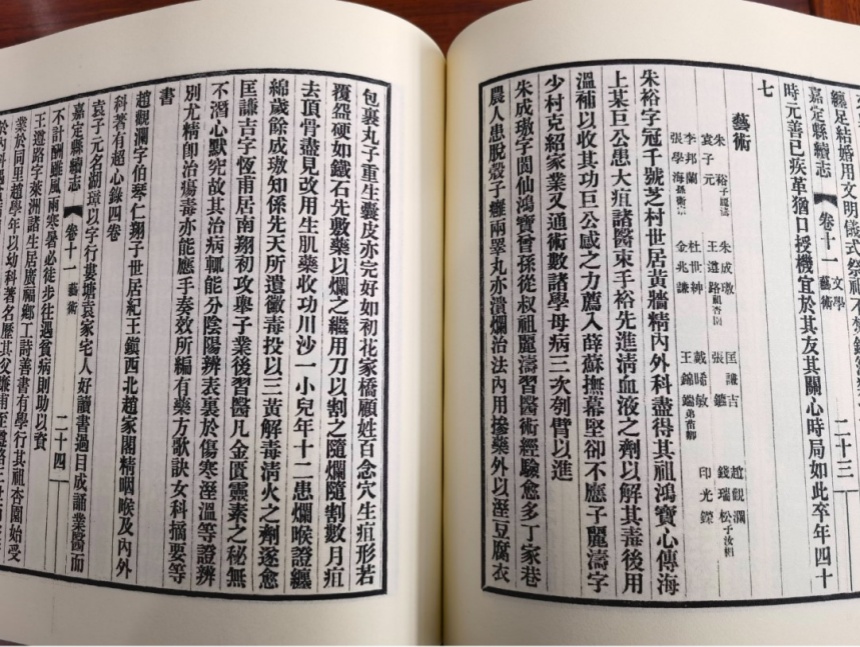 纏足結婚用文明儀式祭祖不
嘉定縣續志 卷十一 文學 藝術 二十三
時元善已疾革猶口授機宜於其友其關心時局如此卒年四十
七
藝術
朱裕子麗濤 朱成璈 匡謙吉 趙觀瀾
袁子元 王遵路祖杏園 張鑣 錢瑞松子汝楫
李邦蘭 杜世紳 戴晞敏 印光鑅
張學海孫衡 金兆謙 王錦鑑弟
朱裕字冠千號芝村世居黃牆精內外科盡得其祖鴻寶心傳海
上某巨公患大疽諸醫束手裕先進淸血液之劑以解其毒後用
溫補以收其功巨公感之力薦入薛蘇撫幕堅卻不應子麗濤字
少村克紹家業又通術數諸學母病三次刲臂以進
朱成璈字閬仙鴻寶曾孫從叔祖麗濤習醫術經驗愈多丁家巷
農人患脫殼子癰兩睪丸亦潰爛治法內用摻藥外以溼豆腐衣
包裹丸子重生囊皮亦完好如初花家橋顧姓百念穴生疽形若
覆盌硬如鐵石先敷藥以爛之繼用刀以割之隨爛隨割數月疽
去頂骨盡見改用生肌藥收功川沙一小兒年十二患爛喉證纏
綿歲餘成璈知係先天所遺黴毒投以三黃解毒淸火之劑遂愈
匡謙吉字恆甫居南翔初攻舉子業後習醫凡金匱靈素之秘無
不潛心默究故其治病輒能分陰陽辨表裏於傷寒溼溫等證辨
別尤精卽治瘍毒亦能應手奏效所編有藥方歌訣女科摘要等
書
趙觀瀾字伯琴仁翔子世居紀王鎭西北趙家閣精咽喉及內外
科著有超心錄四卷
袁子元名湖璋以字行婁塘袁家宅人好讀書過目成誦業醫而
嘉定縣續志 卷十一 藝術 二十四
不計酬雖風雨寒暑必徒步往遇貧病則助以資
王遵路字萊洲諸生居廣福鄉工詩善書有學行其祖杏園始受
業於同里趙學年以幼科著名歷其父謙甫至遵路三世